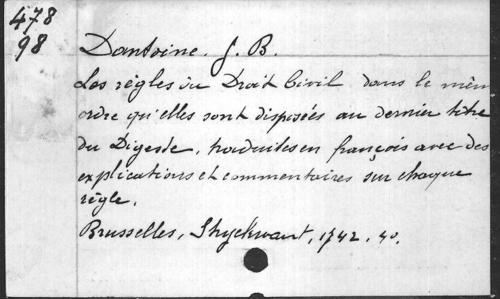 478
98
Dantoine. J. B.
Les règles du Droit Civil, dans le mêm
ordre qu'elles sont disposées au dernier titre
du Digeste, traduites en françois avec des
explications et commentaires sur chaque
règle.
Bruxelles, 1742. 4o.